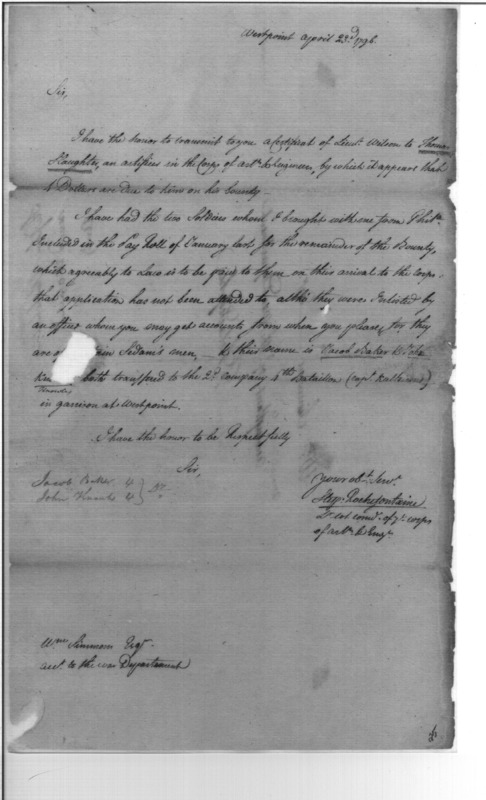 Westpoint april 23.d 1796.
Sir,
I have the honor to transmit to you a Certificat of Lieut. Wilson to Thomas
Slaughter, an artificer in the Corps of art.y & Engineers, by which it appears that
4 Dollars are due to him on his bounty –
I have had the two Soldiers whom I brought with me from Phil.a
Included in the Pay Roll of January last for the remainder of the Bounty,
which agreably to Law is to be paid to them on their arrival to the corps.
that application has not been attended to, altho they were Inlisted by
an officer whom you may get accounts from when you please, for they
are Sedam's men, – their name is Jacob Baker & John
Knowles both transfered to the 2.d company 4th Battalion (Cap.t
in garrison at Westpoint.
I have the honor to be Respectfully
Sir,
your ob.t Serv.t
Step. Rochefontaine
Lt col com.t of ye corps
of art.y & Eng.rs
Jacob Baker 4
John Knowles 4
Wm Simmons Esq.r
acc.t to the war Department